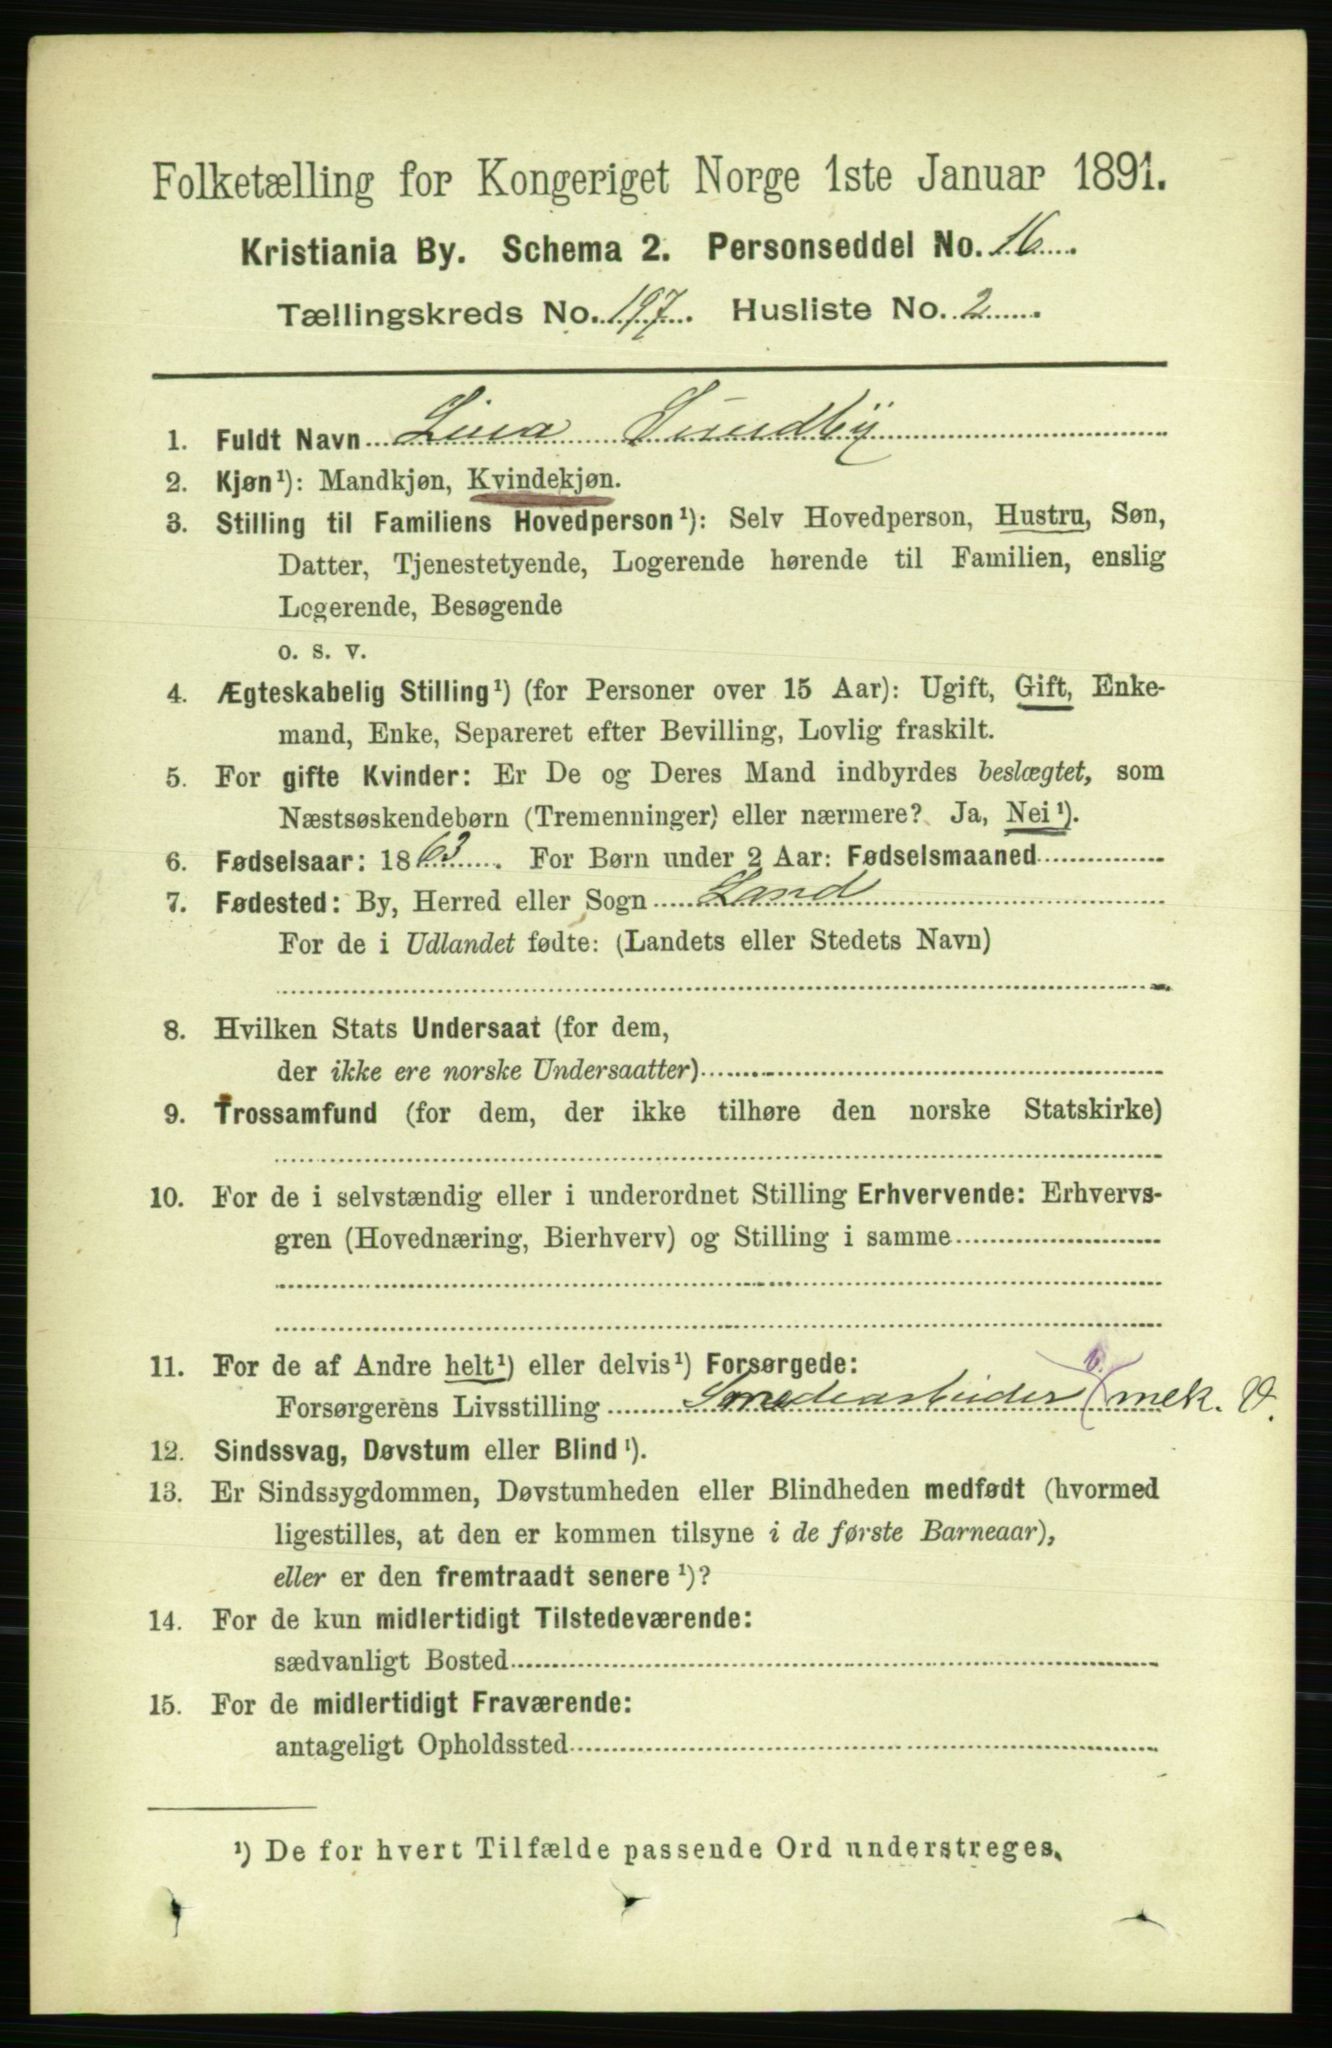 Folketælling for Kongeriget Norge 1ste Januar 1891.
Kristiania By. Schema 2. Personseddel No. 16
Tællingskreds No. 197. Husliste No. 2
1. Fuldt Navn Lina Sundby
2. Kjøn¹): Mandkjøn, Kvindekjøn.
3. Stilling til Familiens Hovedperson¹): Selv Hovedperson, Hustru, Søn,
Datter, Tjenestetyende, Logerende hørende til Familien, enslig
Logerende, Besøgende
o. s. v.
4. Ægteskabelig Stilling¹) (for Personer over 15 Aar): Ugift, Gift, Enke-
mand, Enke, Separeret efter Bevilling, Lovlig fraskilt.
5. For gifte Kvinder: Er De og Deres Mand indbyrdes beslægtet, som
Næstsøskendebørn (Tremenninger) eller nærmere? Ja, Nei¹).
6. Fødselsaar: 1863. For Børn under 2 Aar: Fødselsmaaned
7. Fødested: By, Herred eller Sogn Land
For de i Udlandet fødte: (Landets eller Stedets Navn)
8. Hvilken Stats Undersaat (for dem,
der ikke ere norske Undersaatter)
9. Trossamfund (for dem, der ikke tilhøre den norske Statskirke)
10. For de i selvstændig eller i underordnet Stilling Erhvervende: Erhvervs-
gren (Hovednæring, Bierhverv) og Stilling i samme
11. For de af Andre helt¹) eller delvis¹) Forsørgede:
Forsørgerens Livsstilling Smedearbeider mek. V.
12. Sindssvag, Døvstum eller Blind¹).
13. Er Sindssygdommen, Døvstumheden eller Blindheden medfødt (hvormed
ligestilles, at den er kommen tilsyne i de første Barneaar),
eller er den fremtraadt senere¹)?
14. For de kun midlertidigt Tilstedeværende:
sædvanligt Bosted
15. For de midlertidigt Fraværende:
antageligt Opholdssted
¹) De for hvert Tilfælde passende Ord understreges.